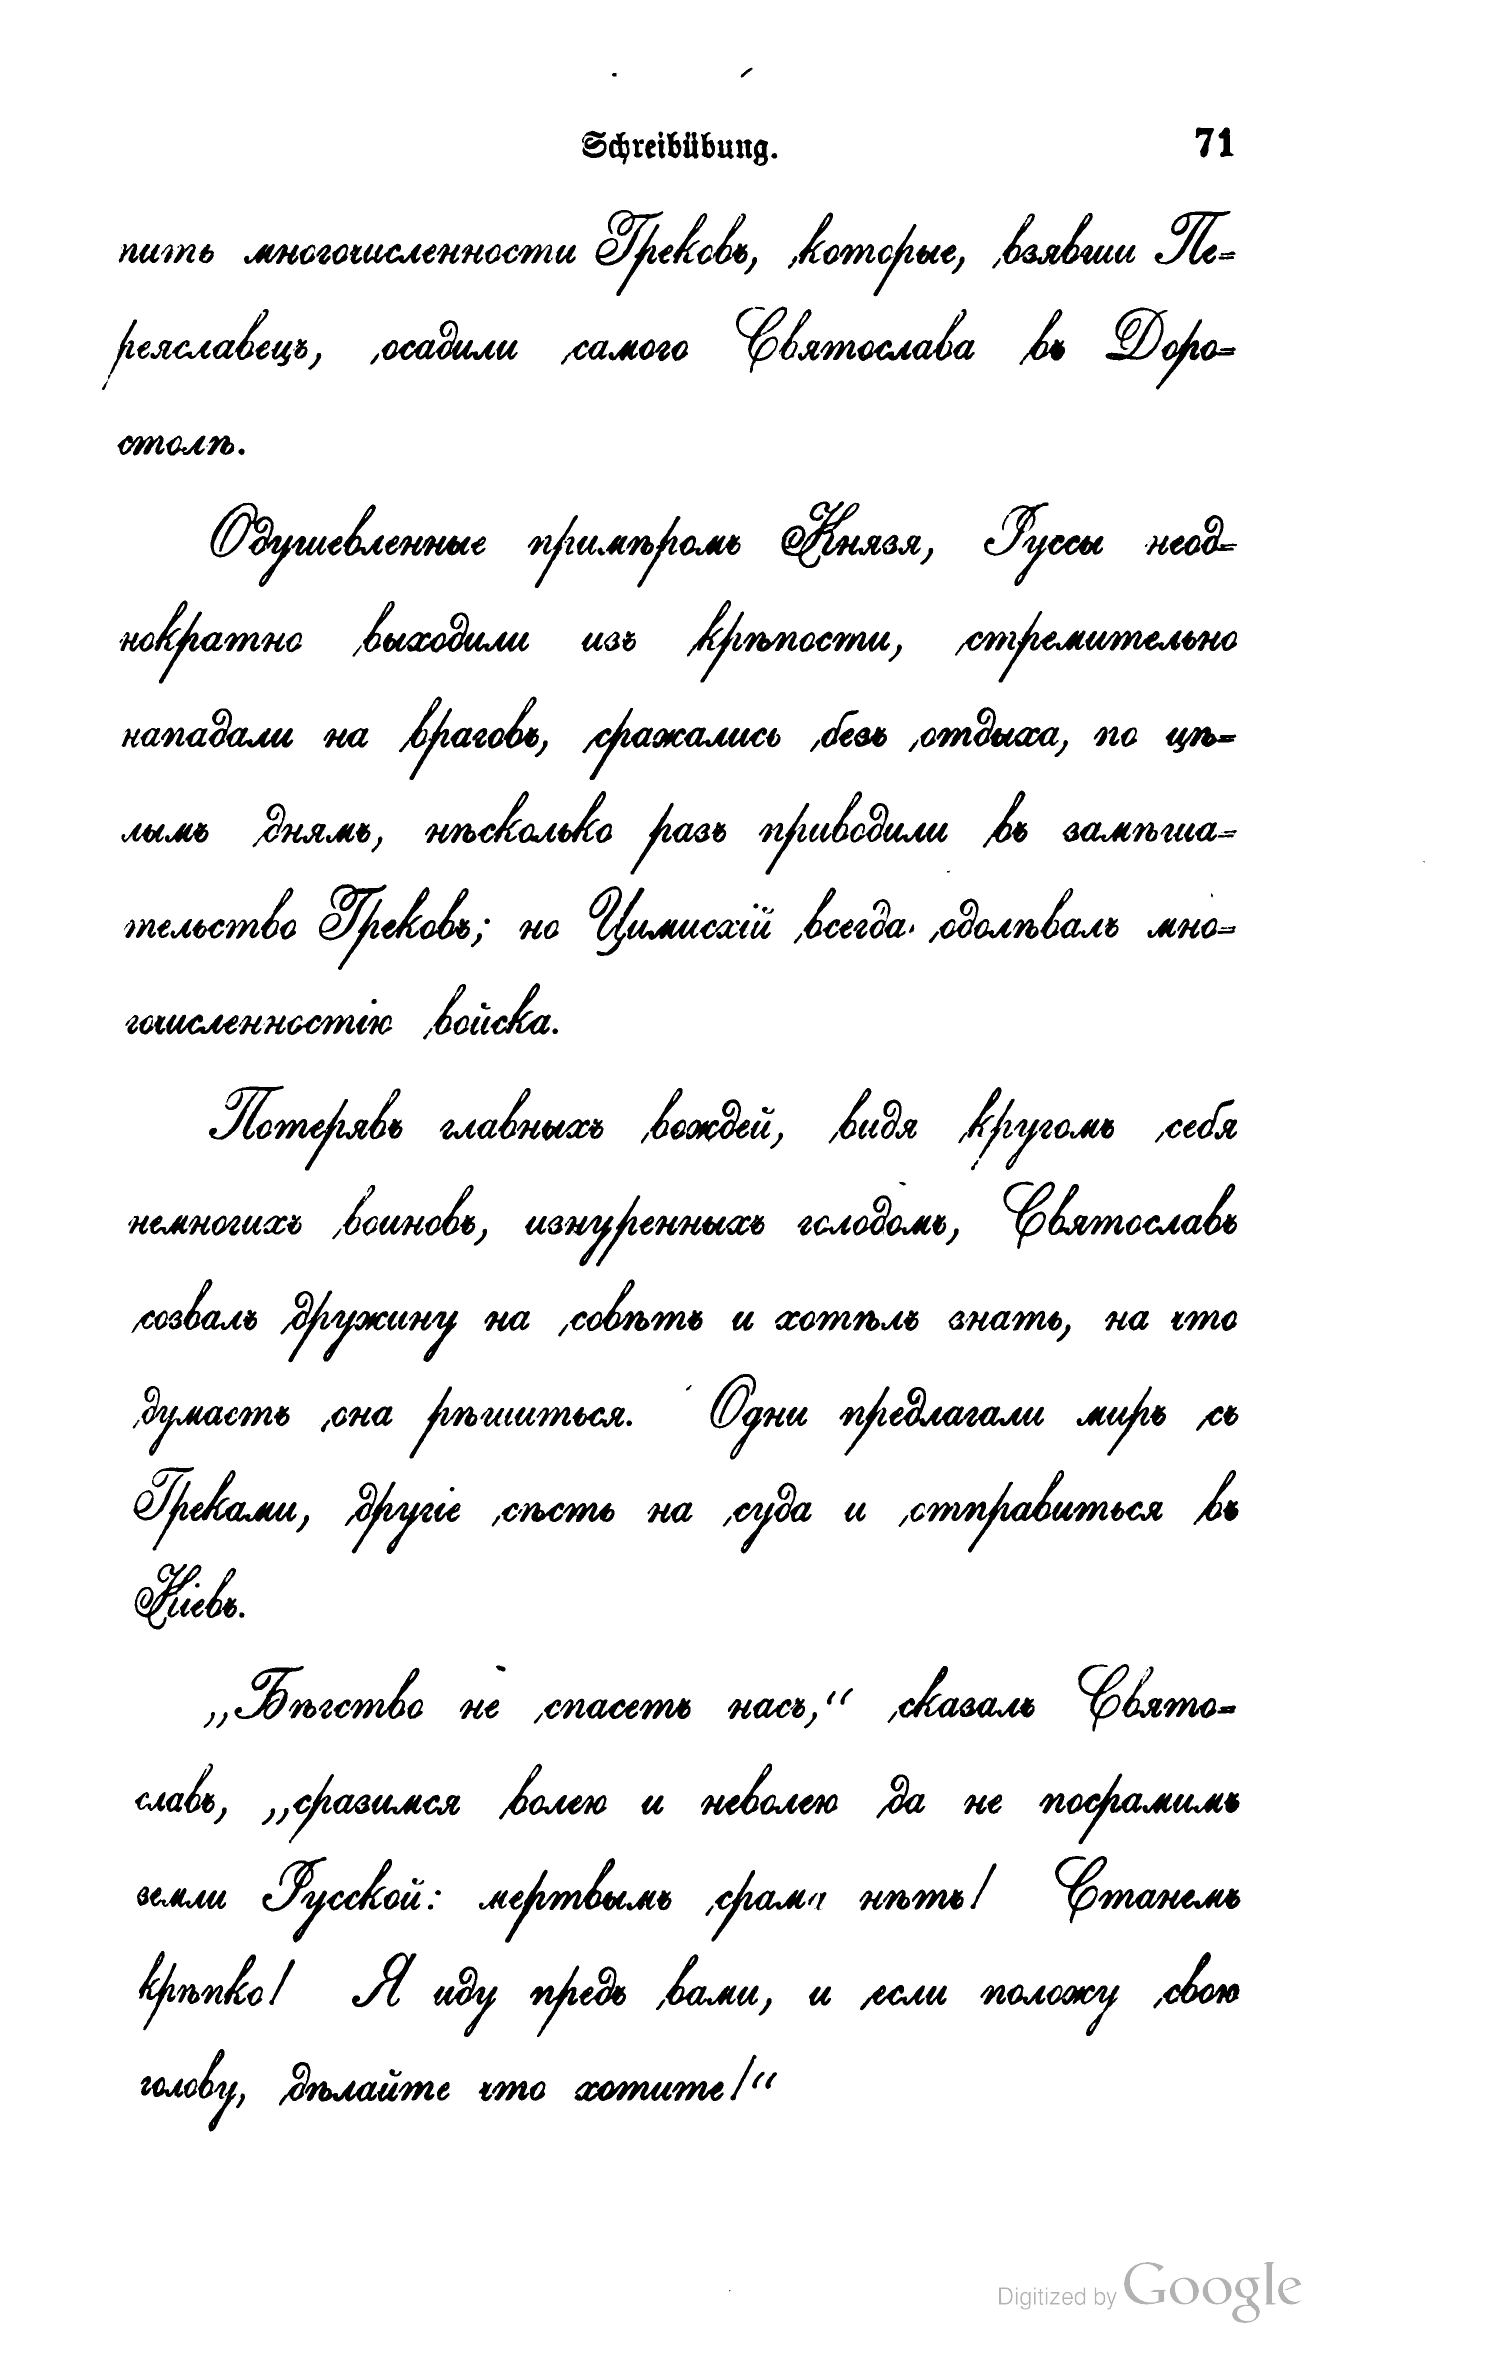 Schreibübung. 71
пить многочисленности Грековъ, которые, взявши Пе=
реяславецъ, осадили самого Святослава въ Доро=
столѣ.
Одушевленные примѣромъ Князя, Руссы неод=
нократно выходили изъ крѣпости, стремительно
нападали на враговъ, сражались безъ отдыха, по цѣ=
лымъ днямъ, нѣсколько разъ приводили въ замѣша=
тельство Грековъ; но Цимисхій всегда одолѣвалъ мно=
гочисленностію войска.
Потерявъ главныхъ вождей, видя кругомъ себя
немногихъ воиновъ, изнуренныхъ голодомъ, Святославъ
созвалъ дружину на совѣтъ и хотѣлъ знать, на что
думаетъ она рѣшиться. Одни предлагали миръ съ
Греками, другіе сѣсть на суда и отправиться въ
Кіевъ.
„Бѣгство не спасетъ насъ,“ сказалъ Свято=
славъ, „сразимся волею и неволею да не посрамимъ
земли Русской: мертвымъ срама нѣтъ! Станемъ
крѣпко! Я иду предъ вами, и если положу свою
голову, дѣлайте что хотите!“
Digitized by Google